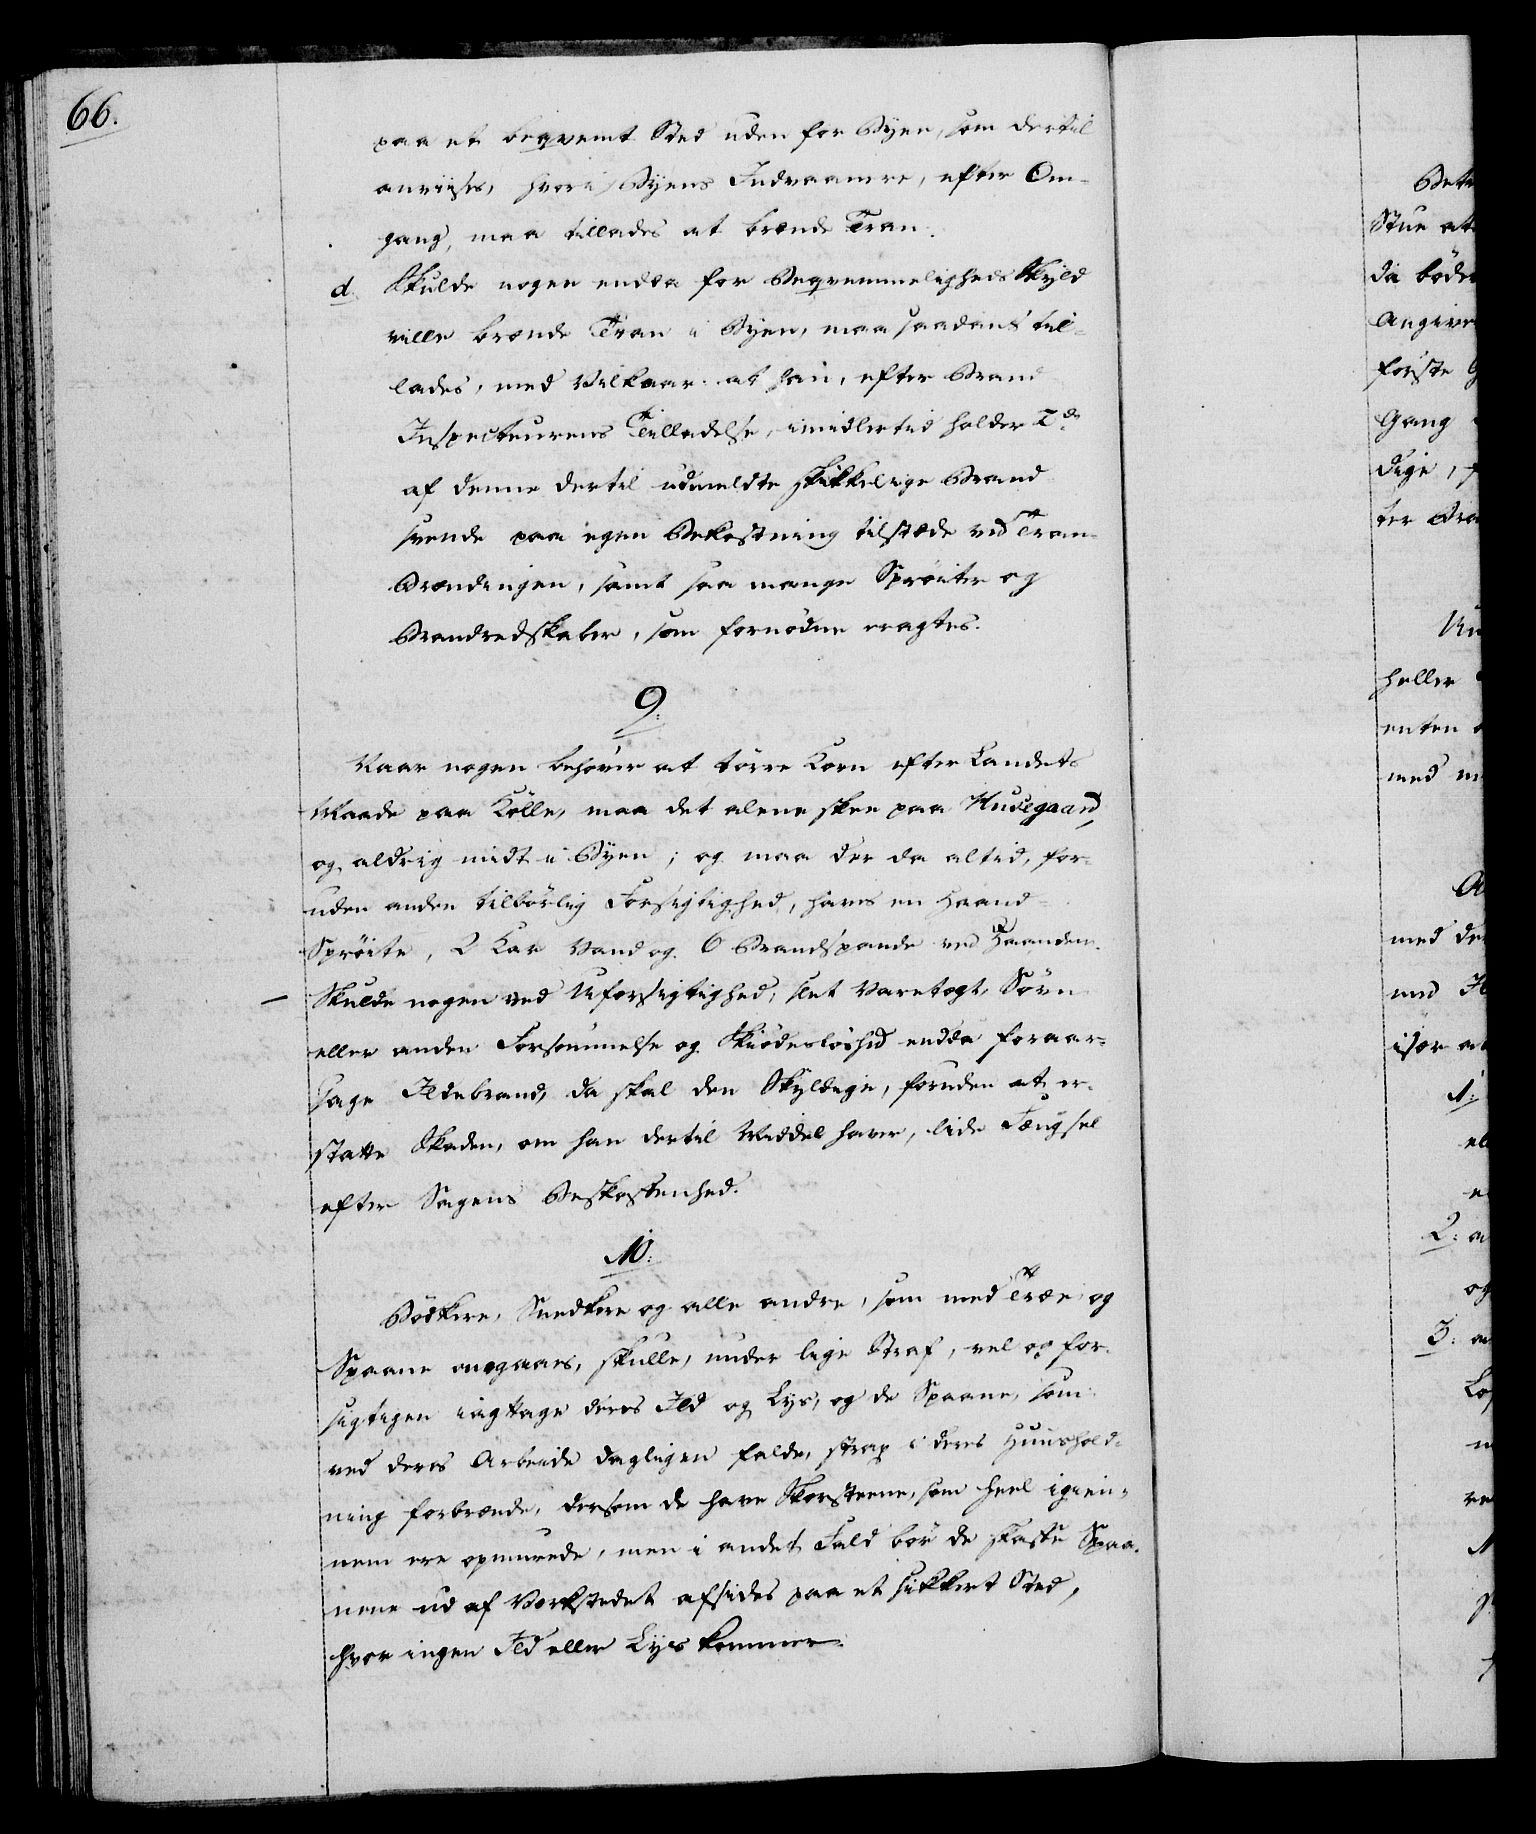 66.
paa et beqvemt Sted uden for Byen, som dertil
anviises, hvori Byens Indvaanere, efter Om-
gang, maa tillades at brænde Tran.
d. Skulde nogen endda for Beqvemmeligheds Skyld
ville brænde Tran i Byen, maa saadant til-
lades, med Vilkaar at han, efter Brand
Inspecteurens Tilladelse, imidlertid holder 2de
af denne dertil udmeldte skikkelige Brand
svende paa egen Bekostning tilstæde ved Tran-
Brændingen, samt saa mange Sprøiter og
Brandredskaber, som fornødne eragtes.
9.
Naar nogen behøver at tørre Korn efter Landets
Maade paa Kølle, maa det alene skee paa Husegaard,
og aldrig midt i Byen; og maa der da altid, for-
uden anden tilbørlig Forsigtighed, haves en Haand-
Sprøite, 2 Kar Vand og 6 Brandspande ved Haanden.
– Skulde nogen ved Uforsigtighed, slet Varetægt, Søvn
eller anden Forsømmelse og Skiødesløshed endda foraar-
sage Ildebrand, da skal den Skyldige, foruden at er-
statte Skaden, om han dertil Middel haver, lide Fængsel
efter Sagens Beskaffenhed.
10.
Bødkere, Snedkere og alle andre, som med Træe og
Spaane omgaaes, skulle, under lige Straf, vel og for-
sigtigen iagttage deres Ild og Lys, og de Spaane, som
ved deres Arbeide dagligen falde, strax i deres Huushold-
ning forbrænde, dersom de have Skorsteene, som heel igien-
nem ere opmurede, men i andet Fald bør de skaffe Spaa-
nene ud af Værkstedet afsides paa et sikkert Sted,
hvor ingen Ild eller Lys kommer.
Stue at
da bøde
Angive
første
Gang
dige,
heller
enten
med
med de
især at
1.
2. a
og
3. a